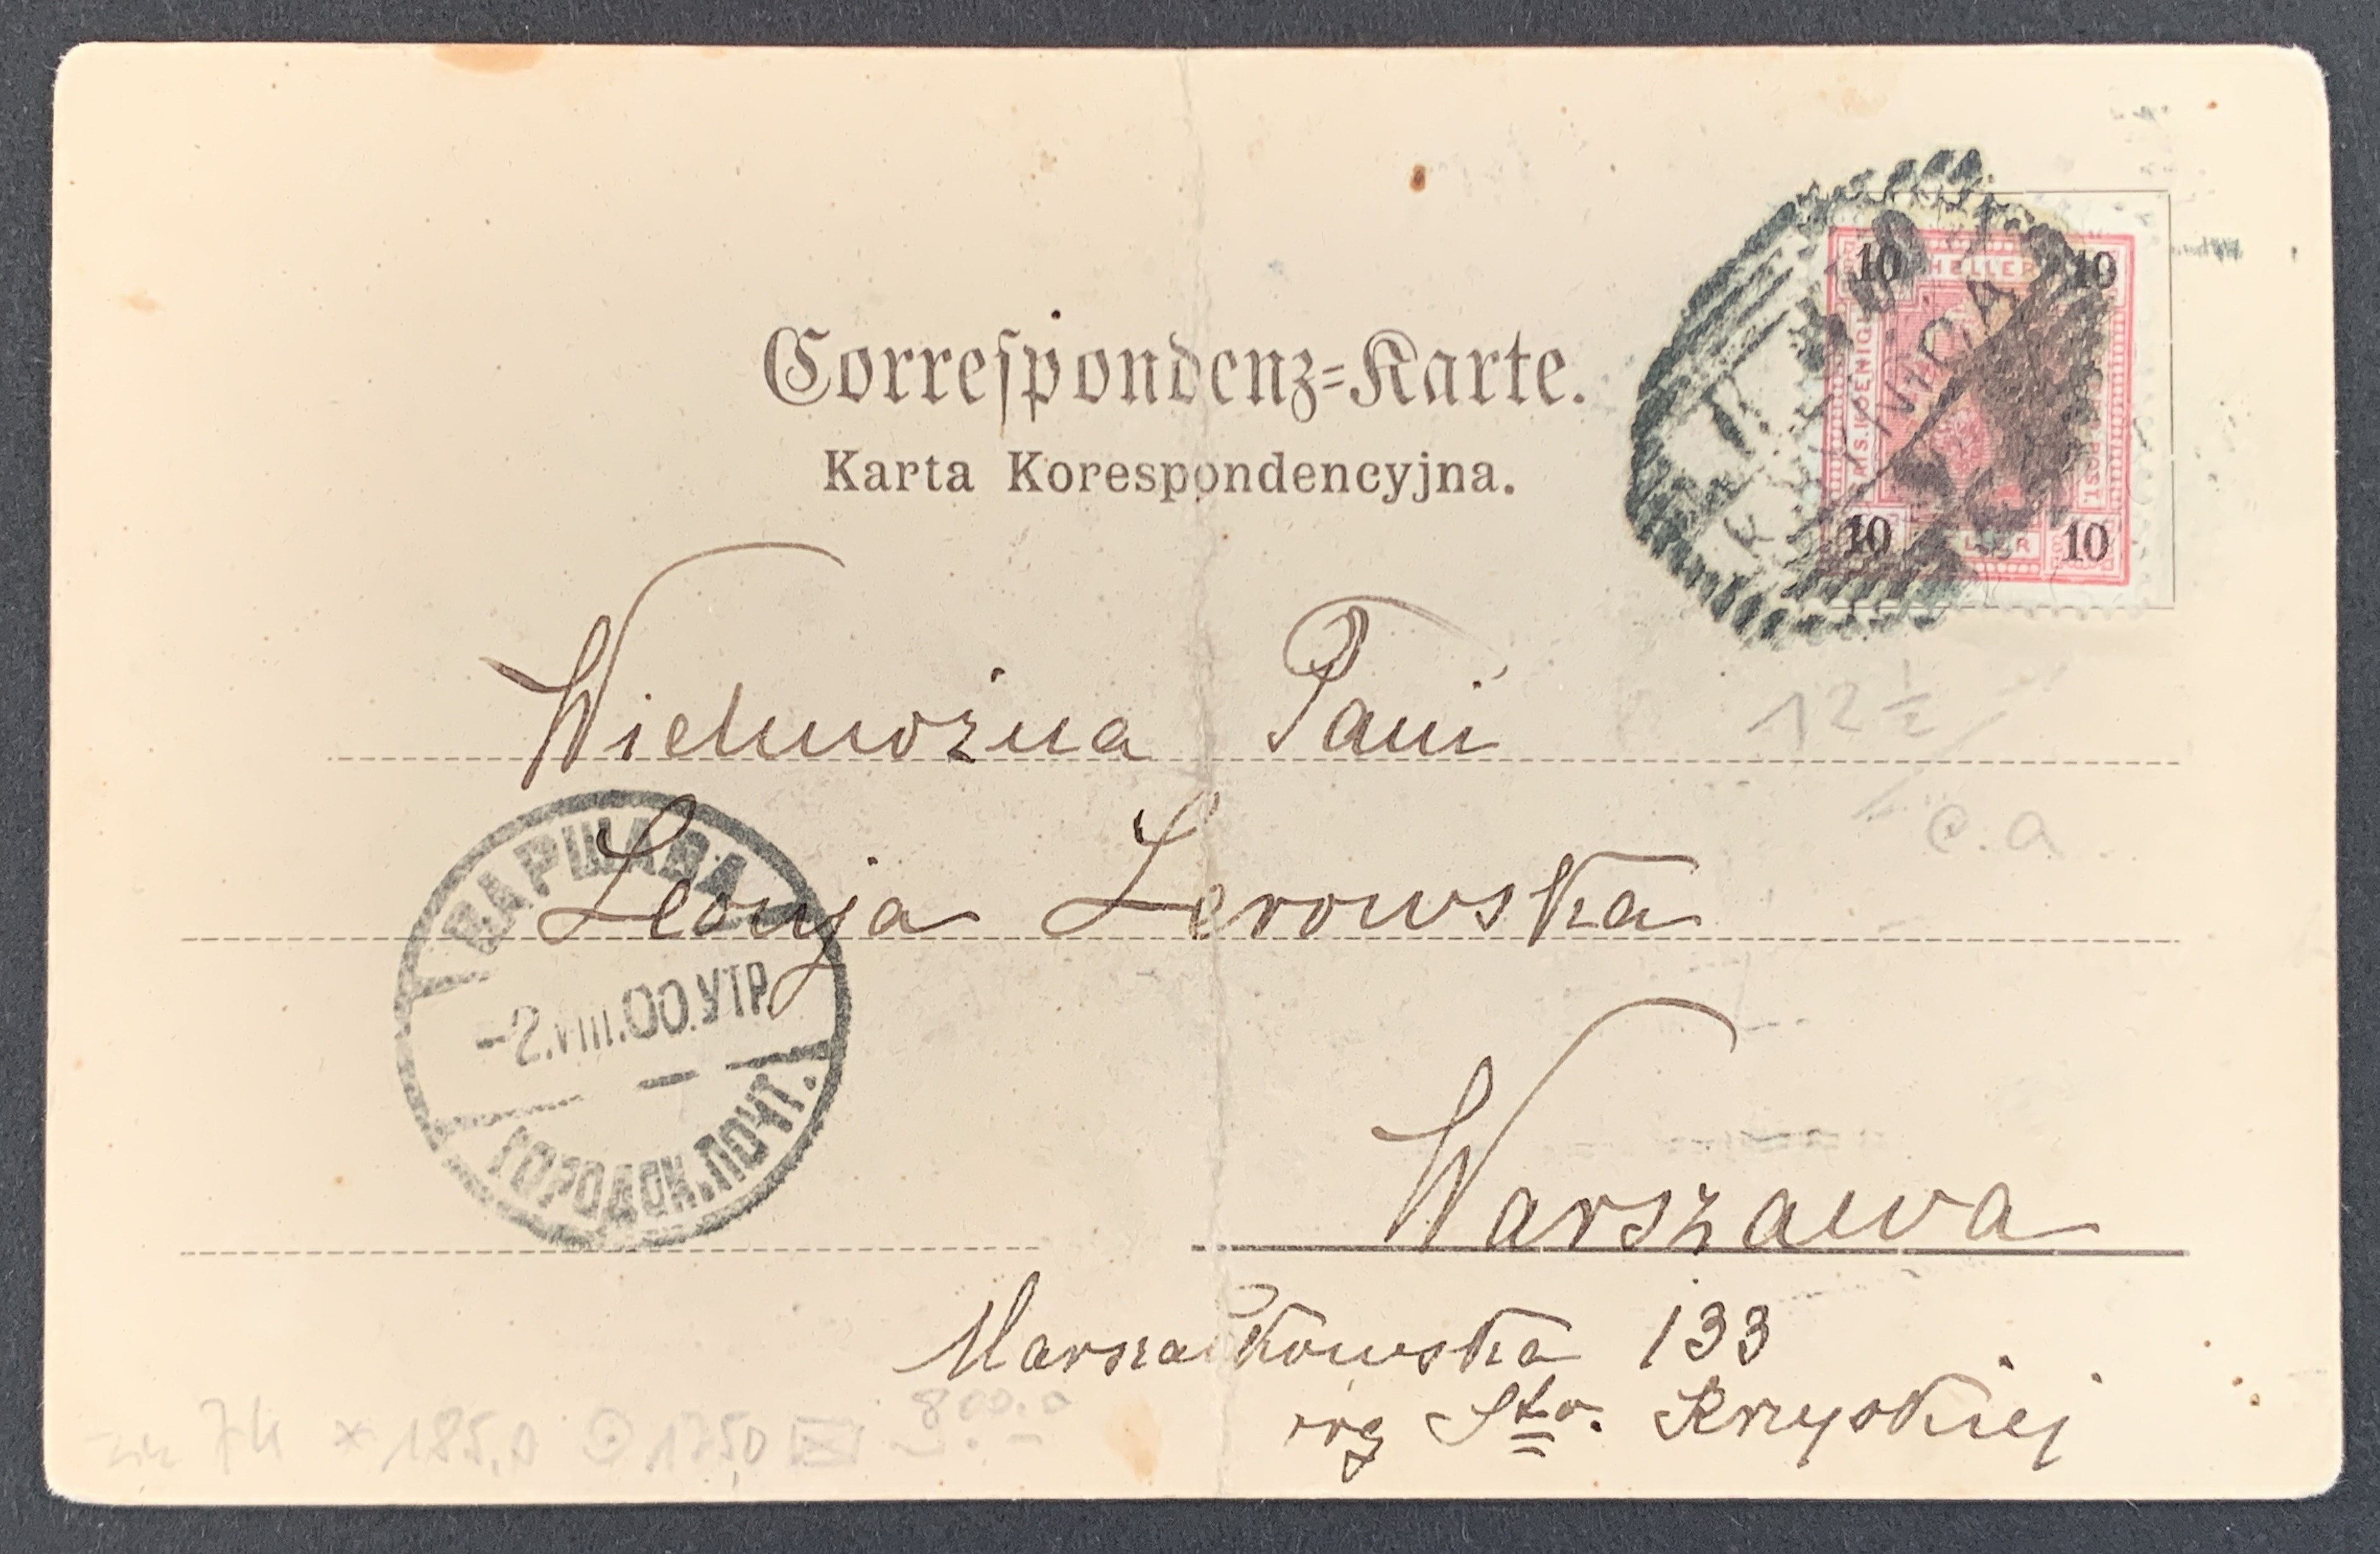 Correspondenz-Karte.
Karta Korespondencyjna.
10 HELLER 10
KRYNICA
10 10
Wielmożna Pani
Leonja Lerowska
Warszawa
Marszałkowska 133
róg Sto. Krzyskiej
ВАРШАВА
-2.VIII.00.УТР.
ГОРОДСК.ПОЧТ.
12½
c.a.
74 * 185,0 1250 800.0